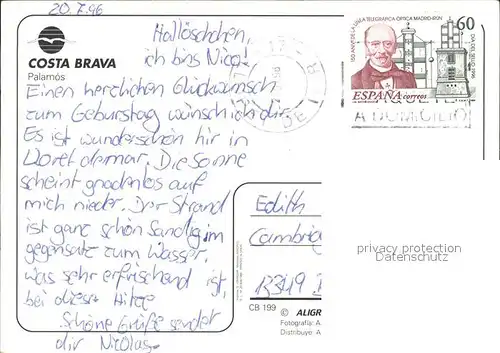 20.7.96
Hallöschchen,
ich bins Nico!
COSTA BRAVA
Palamós
Einen herzlichen Glückwunsch
zum Geburstag wünsch ich dir.
Es ist wunderschön hir in
Lloret de mar. Die Sonne
scheint gnadenlos auf
mich nieder. Der Strand
ist ganz schön Sandig, im
gegensatz zum Wasser,
was sehr erfrischend ist,
bei dieser Hitze
Schöne Grüße sendet
dir Nicolas.
150 ANIV. DE LA LINEA TELEGRAFICA OPTICA MADRID-IRUN
60
DIA DEL SELLO 1996
ESPAÑA correos
A DOMICILIO
Edith
Cambrig
privacy protection
Datenschutz
CB 199 © ALIGR
Fotografía: A.
Distribuye: A.